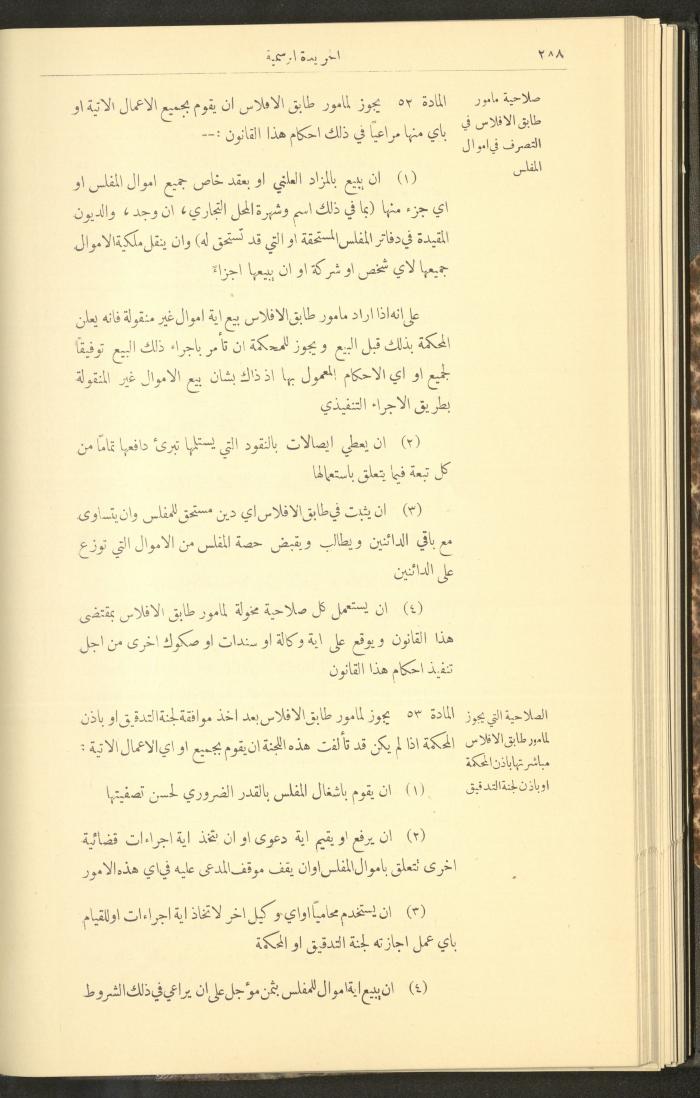 ٢٨٨
الجريدة الرسمية
صلاحية مامور
طابق الافلاس في
التصرف في اموال
المفلس
المادة ٥٢ يجوز لمامور طابق الافلاس ان يقوم بجميع الاعمال الاتية او
باي منها مراعياً في ذلك احكام هذا القانون :--
(١) ان يبيع بالمزاد العلني او بعقد خاص جميع اموال المفلس او
اي جزء منها (بما في ذلك اسم وشهرة المحل التجاري ، ان وجد ، والديون
المقيدة في دفاتر المفلس المستحقة او التي قد تستحق له) وان ينقل ملكية الاموال
جميعها لاي شخص او شركة او ان يبيعها اجزاءً
على انه اذا اراد مامور طابق الافلاس بيع اية اموال غير منقولة فانه يعلن
المحكمة بذلك قبل البيع ويجوز للمحكمة ان تأمر باجراء ذلك البيع توفيقاً
لجميع او اي الاحكام المعمول بها اذ ذاك بشان بيع الاموال غير المنقولة
بطريق الاجراء التنفيذي
(٢) ان يعطي ايصالات بالنقود التي يستلمها تبرئ دافعها تماماً من
كل تبعة فيما يتعلق باستعمالها
(٣) ان يثبت في طابق الافلاس اي دين مستحق للمفلس وان يتساوى
مع باقي الدائنين ويطالب ويقبض حصة المفلس من الاموال التي توزع
على الدائنين
(٤) ان يستعمل كل صلاحية مخولة لمامور طابق الافلاس بمقتضى
هذا القانون ويوقع على اية وكالة او سندات او صكوك اخرى من اجل
تنفيذ احكام هذا القانون
الصلاحية التي يجوز
لمامور طابق الافلاس
مباشرتها باذن المحكمة
او باذن لجنة التدقيق
المادة ٥٣ يجوز لمامور طابق الافلاس بعد اخذ موافقة لجنة التدقيق او باذن
المحكمة اذا لم يكن قد تألفت هذه اللجنة ان يقوم بجميع او اي الاعمال الاتية :
(١) ان يقوم باشغال المفلس بالقدر الضروري لحسن تصفيتها
(٢) ان يرفع او يقيم اية دعوى او ان يتخذ اية اجراءات قضائية
اخرى تتعلق باموال المفلس او ان يقف موقف المدعى عليه في اي هذه الامور
(٣) ان يستخدم محامياً او اي وكيل اخر لاتخاذ اية اجراءات او للقيام
باي عمل اجازته لجنة التدقيق او المحكمة
(٤) ان يبيع اية اموال للمفلس بثمن مؤجل على ان يراعي في ذلك الشروط